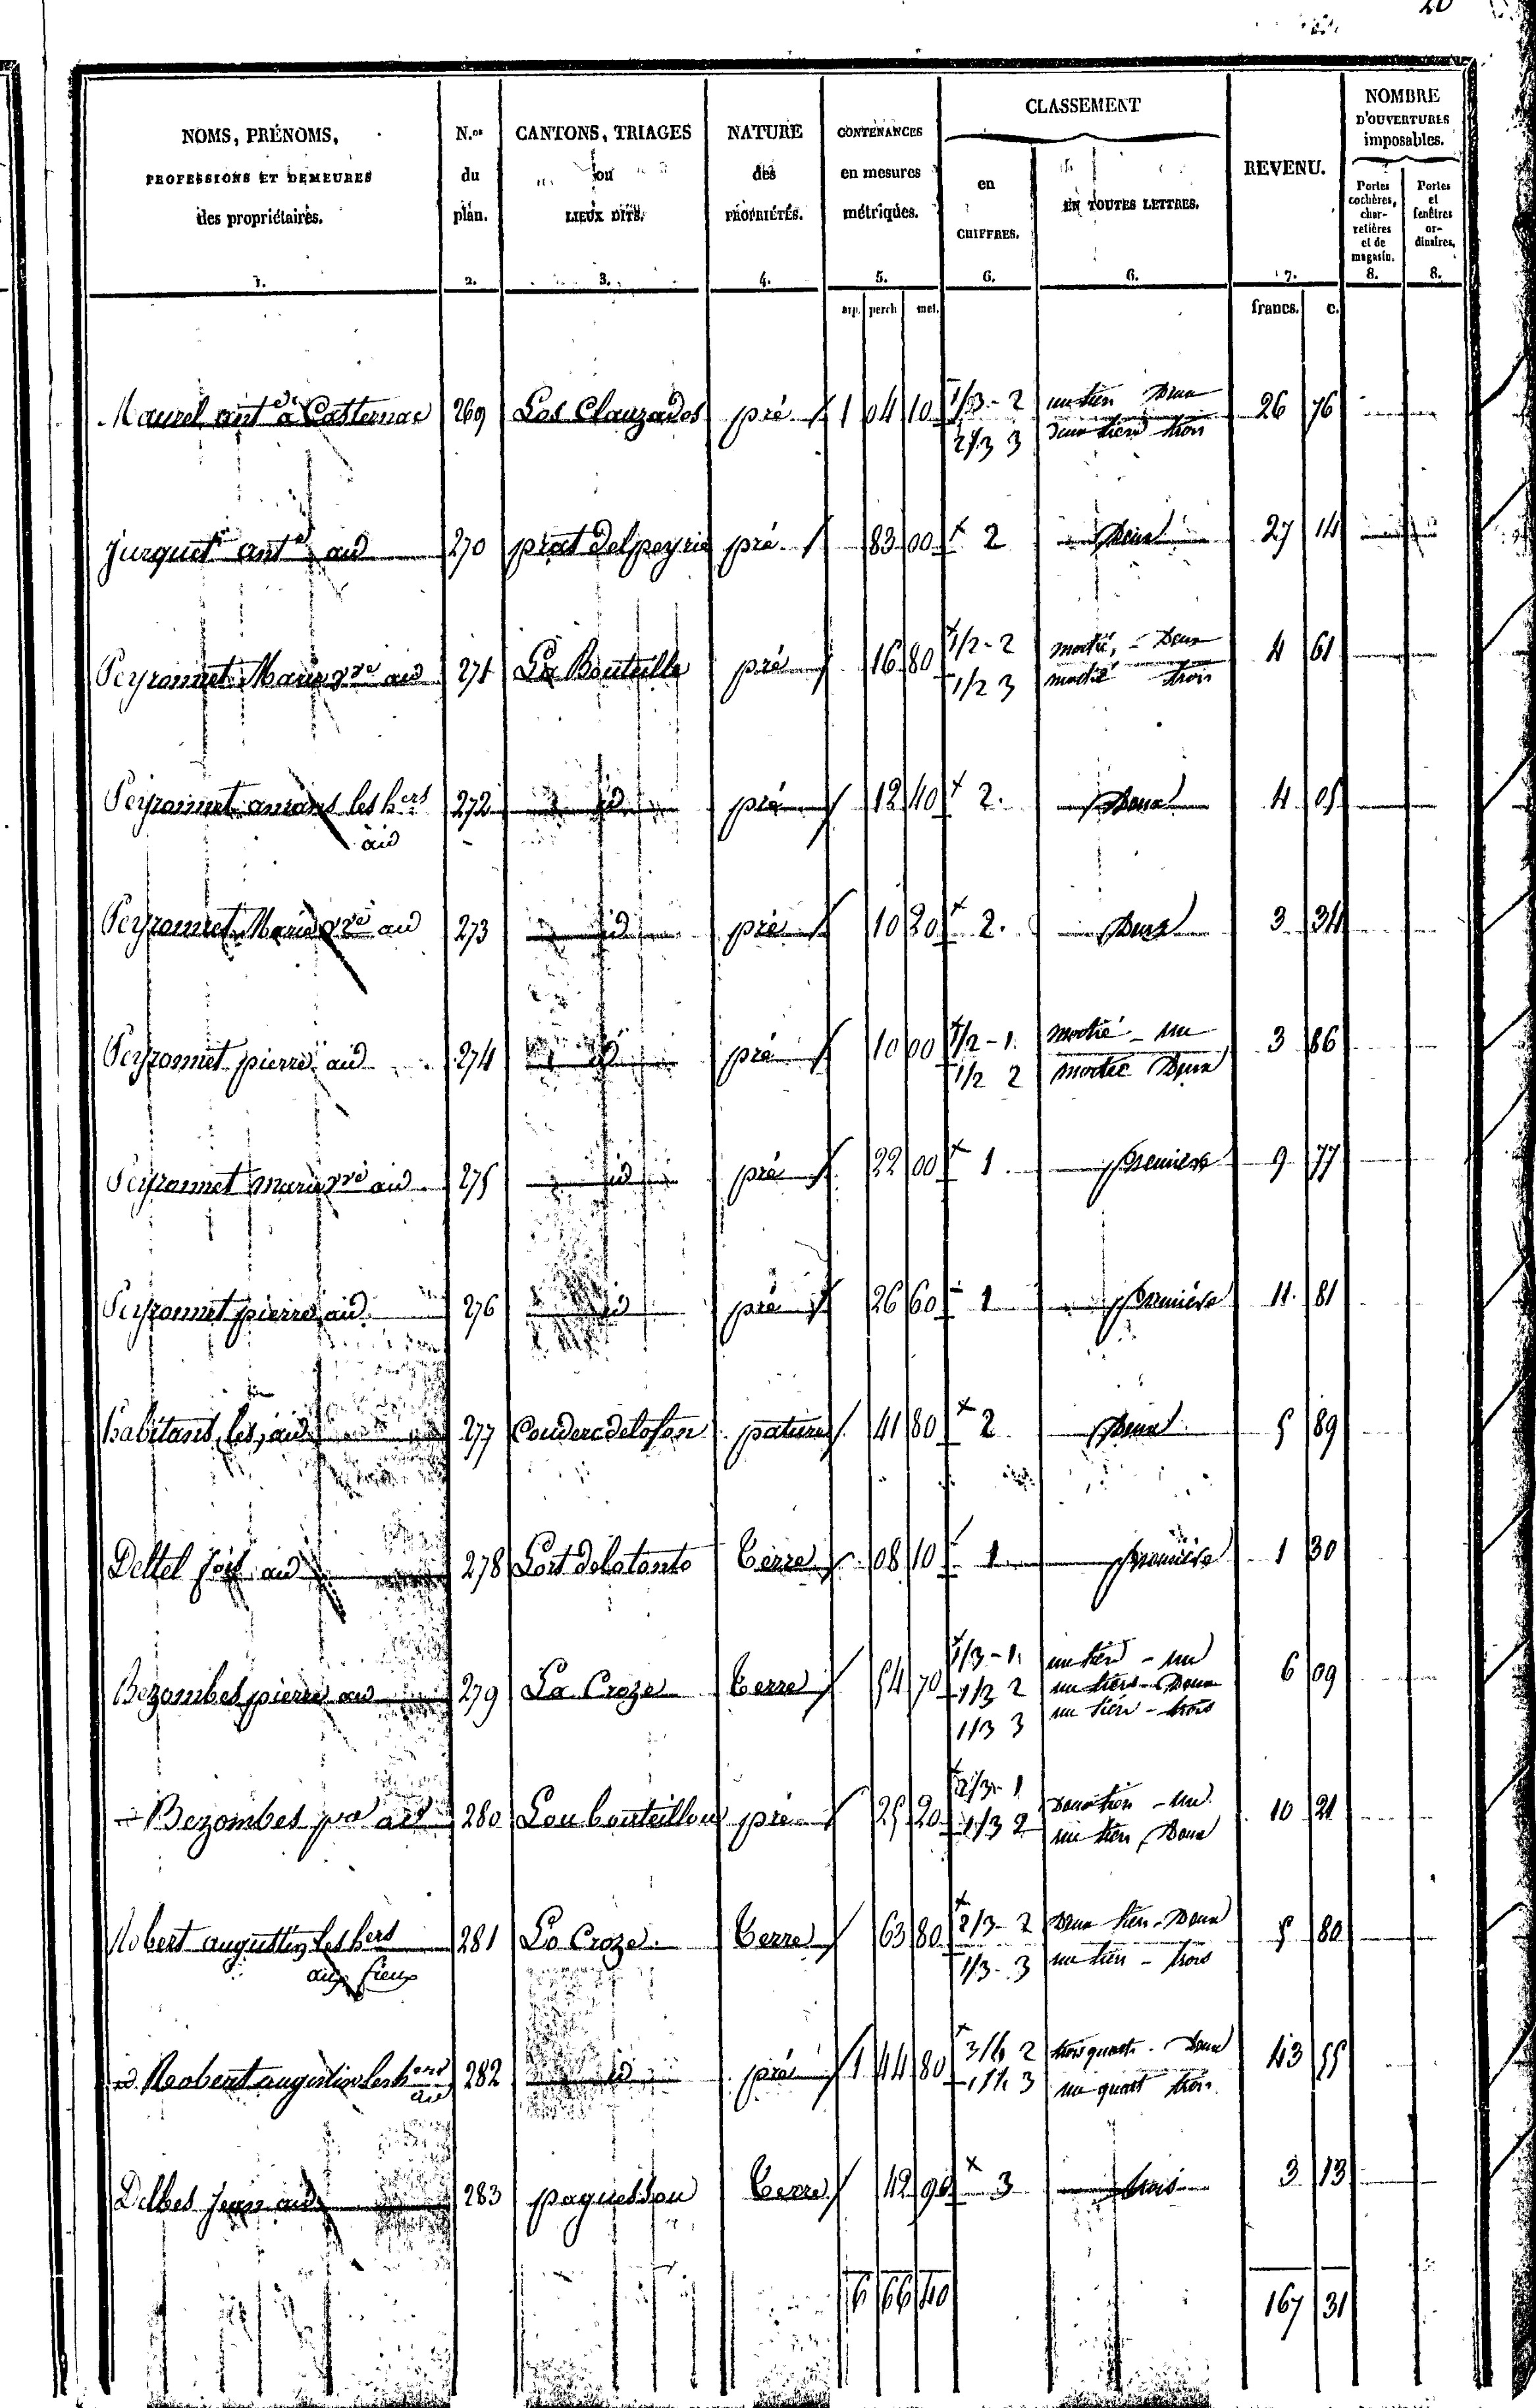 20
NOMS, PRÉNOMS, PROFESSIONS ET DEMEURES des propriétaires. 1.
N.os du plan. 2.
CANTONS, TRIAGES ou LIEUX DITS. 3.
NATURE des PROPRIÉTÉS. 4.
CONTENANCES en mesures métriques. 5.
CLASSEMENT
en CHIFFRES. 6.
EN TOUTES LETTRES. 6.
REVENU. 7.
NOMBRE D'OUVERTURES imposables.
Portes cochères, charretières et de magasin. 8.
Portes et fenêtres ordinaires. 8.
arp. perch met. francs. c.
Maurel ant.e à Casternac 269 Las Clauzades pré 1 04 10 1/3 - 2 un tiers Deux 26 76
2/3 3 deux tiers trois
Jurquet ant.e aud 270 prat delpeyrie pré 83 00 2 Deux 27 14
Peyronnet Marie vve aud 271 La Bouteille pré 16 80 1/2 - 2 moitié, - Deux 4 61
1/2 3 moitié trois
Peyronnet les hers 272 id pré 12 40 2. Deux 4 05
aud
Peyronnet Marie vve aud 273 id pré 10 20 2. Deux 3 34
Peyronnet pierre aud 274 id pré 10 00 1/2 - 1. moitié - un 3 86
1/2 2 moitié Deux
Peyronnet marie vve aud 275 id pré 22 00 1. première 9 77
Peyronnet pierre aud 276 id pré 26 60 1 première 11. 81
habitans, les, aud 277 Couderc delafon pature 41 80 2 Deux 5 89
Deltel aud 278 Terre 08 10 1 première 1 30
Bezombes pierre aud 279 La Croze Terre 54 70 1/3 - 1. un tiers - un 6 09
1/3 2 un tiers - Deux
1/3 3 un tiers - trois
Bezombes p.re aud 280 Lou bouteillou pré 25 20 2/3 - 1 Deux tiers - un 10 21
1/3 2 un tiers, Deux
Robert augustin, les hers 281 La Croze. Terre 63 80 2/3 - 2 Deux tiers - Deux 5 80
aux fieux 1/3 - 3 un tiers - trois
Robert augustin les hers 282 id pré 1 44 80 3/4 2 trois quarts - Deux 43 55
aud 1/4 3 un quart trois
Delbes Jean aud 283 paguessou Terre 42 90 3 trois 3 13
6 66 40 167 31